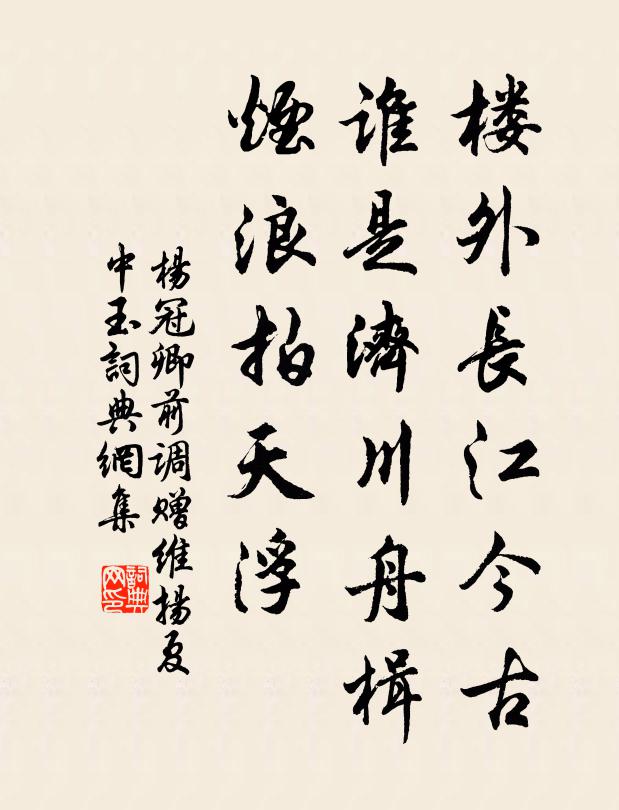 楼外長江今古
誰是濟川舟楫
煙浪拍天浮
楊冠卿前调赠维揚夏
中玉詞典網集
詞典网印